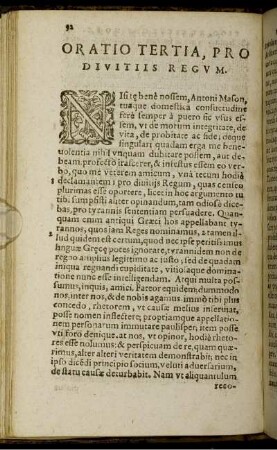 92
ORATIO TERTIA, PRO
DIVITIIS REGVM.
NIsi te benè nossem, Antoni Mason,
tuaque domestica consuetudine
ferè semper à puero sic vsus es-
sem, vt de morum integritate, de
vita, de probitate ac fide, deque
singulari quadam erga me bene-
uolentia nihil vnquam dubitare possem, aut de-
beam, profectò irascerer, & infestus essem eo ver-
bo, quo me veterem amicum, vnà tecum hodiè
declamantem pro diuitijs Regum, quas centies
plurimas esse oportere, licet in hoc argumento tu
tibi sumpsisti aliter opinandum, tam odiosè dice-
bas, pro tyrannis sententiam persuadere. Quan-
quam enim antiqui Græci hos appellabant ty-
rannos, quos iam Reges nominamus, a tamen il-
lud quidem est certum, quod nec ipse peritissimus
linguæ Græcæ potes ignorare, tyrannidem non de
regno amplius legitimo ac iusto, sed de quadam
iniqua regnandi cupiditate, vitiosaque domina-
tione nunc esse intelligendam. Atqui multa pos-
sumus, inquis, amici. Fateor equidem, dummodo
nos, inter nos, & de nobis agamus: immò tibi plus
concedo, rhetorem, vt causæ melius inseruiat,
posse nomen insectere; propriamque appellatio-
nem personarum immutare paulisper, item posse
vti foro denique, at nos, vt opinor, hodiè rheto-
res esse nolumus: & perspicuam de re, quam quæ-
rimus, alter alteri veritatem demonstrabit, nec in
ipso dicẽdi principio socium, veluti aduersarium,
de statu causæ deturbabit. Nam vt aliquantulum
reco-